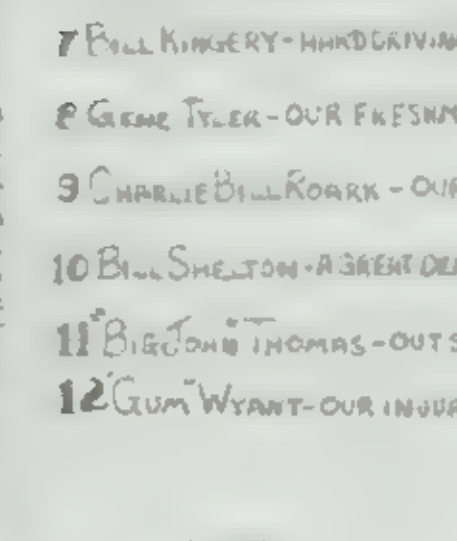 7 BILL KINGERY - HARD DRIVIN
8 GENE TYLER - OUR FRESHM
9 CHARLIE BILL ROARK - OUR
10 BILL SHELTON - A GREAT DE
11 "BIG JOHN" THOMAS - OUTS
12 "GUM" WYANT - OUR INJUR